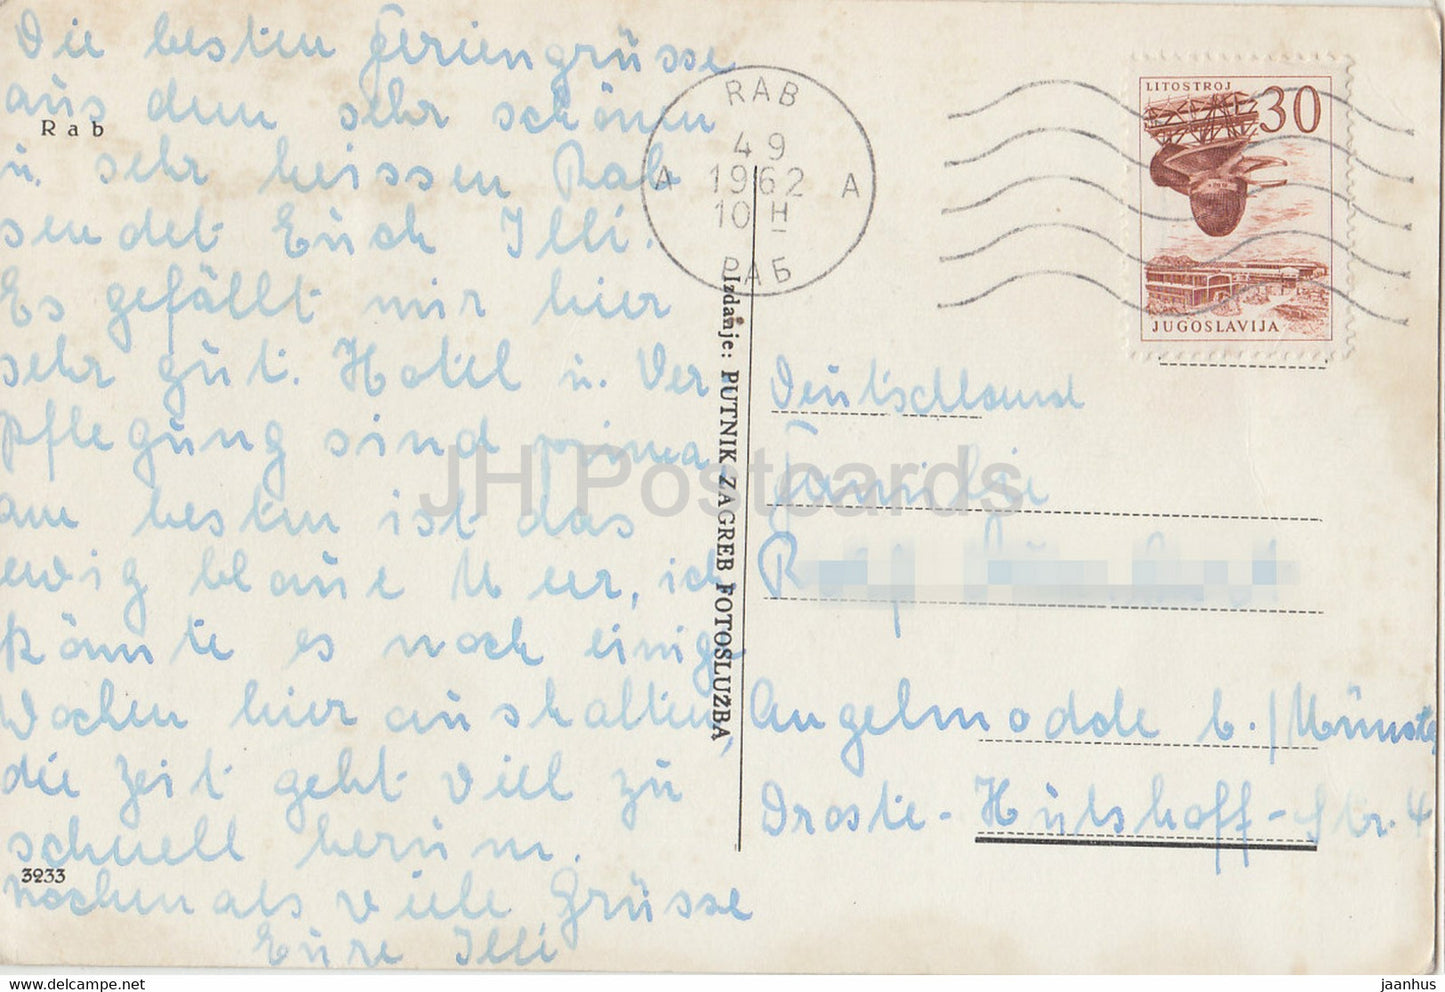 Die besten Feriengrüsse
aus dem sehr schönen
Rab
u. sehr heissen Rab
sendet Euch Illi.
Es gefällt mir hier
sehr gut. Hotel u. Ver
pflegung sind prima,
am besten ist das
ewig blaue Meer, ich
könnte es noch einige
Wochen hier aushalten,
die Zeit geht viel zu
schnell herum.
3233
nochmals viele Grüsse
Eure Illi
RAB
4 9
A 1962 A
10 H
РАБ
Izdanje: PUTNIK ZAGREB FOTOSLUŽBA
LITOSTROJ 30
JUGOSLAVIJA
Deutschland
Familie
Angelmodde b./Münster
Droste-Hülshoff-Str. 4
JH Postcards
www.hippostcard.com
jaanhus